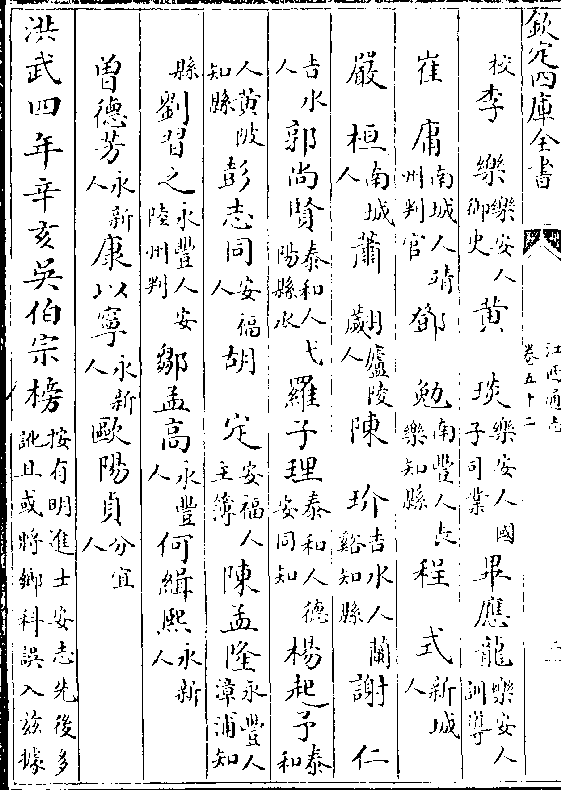 欽定四庫全書
江西通志
卷五十二
校李樂樂安人御史黃琰樂安人國子司業畢應龍樂安人訓導
崔庸南城人靖州判官鄧勉南豐人長樂知縣程式新城人
嚴桓南城人蕭翽廬陵人陳玠吉水人蘭谿知縣謝仁
吉水人郭尚賢泰和人弋陽縣丞羅子理泰和人德安同知楊起予泰和
人黃陂知縣彭志同安福人胡定安福人主簿陳孟隆永豐人漳浦知
縣劉習之永豐人安陸州判鄒孟高永豐人何緝熙永新人
曾德芳永新人康以寧永新人歐陽貞分宜人
洪武四年辛亥吳伯宗榜按有明進士安志先後多訛且或將鄉科誤入兹據